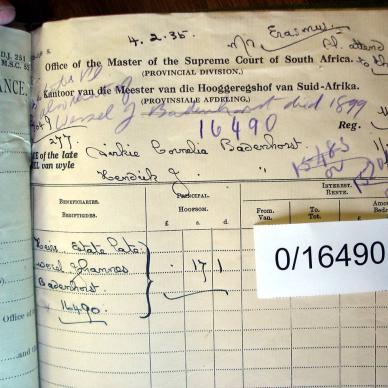 D.J. 251
M.S.C. 5
4. 2. 35.
Erasmus
pl. attend
Office of the Master of the Supreme Court of South Africa.
(PROVINCIAL DIVISION.)
Kantoor van die Meester van die Hooggeregshof van Suid-Afrika.
(PROVINSIALE AFDELING.)
Wessel J Badenhorst died 1899
16490
Reg.
277
E of the late
EL van wyle
Cornelia Badenhorst
Hendrik J. "
15483
BENEFICIARIES.
BEGIFTIGDES.
PRINCIPAL.
HOOFSOM.
£ s. d.
INTEREST.
RENTE.
From.
Van.
To.
Tot.
Amou
Bedr
£
Estate Late
Johannes
Badenhorst.
16490
. 17 1
0/16490
Office of
and